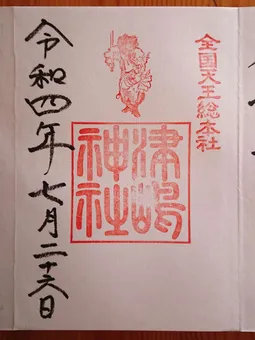 全国天王総本社
津嶋
神社
令和四年七月二十六日